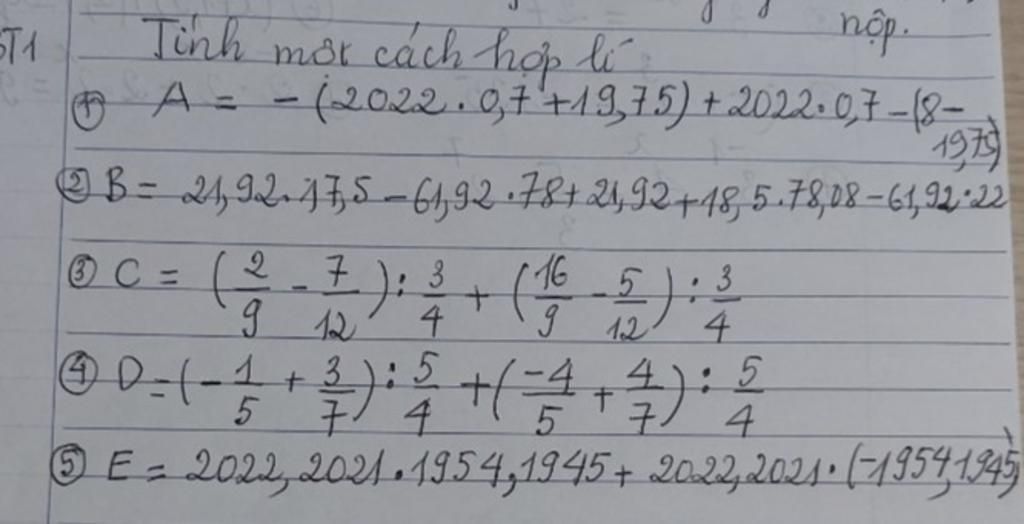 nộp.
BT1 Tính một cách hợp lí
① A = - (2022 . 0,7 + 19,75) + 2022 . 0,7 - (8 -
19,75)
② B = 21,92 . 17,5 - 61,92 . 78 + 21,92 + 18,5 . 78,08 - 61,92 . 22
③ C = (2/9 - 7/12) : 3/4 + (16/9 - 5/12) : 3/4
④ D = (-1/5 + 3/7) : 5/4 + (-4/5 + 4/7) : 5/4
⑤ E = 2022,2021 . 1954,1945 + 2022,2021 . (-1954,1945)